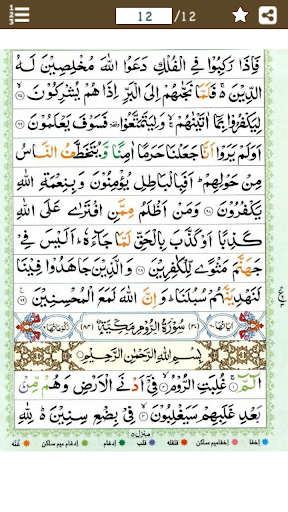 12 /12
فَاِذَا رَكِبُوۡا فِى الۡفُلۡكِ دَعَوُا اللّٰهَ مُخۡلِصِيۡنَ لَهُ
الدِّيۡنَ ۚ فَلَمَّا نَجّٰٮهُمۡ اِلَى الۡبَرِّ اِذَا هُمۡ يُشۡرِكُوۡنَ ۙ‏﴿۶۵﴾
لِيَكۡفُرُوۡا بِمَاۤ اٰتَيۡنٰهُمۡ ۙۚ وَلِيَتَمَتَّعُوۡا ۥ فَسَوۡفَ يَعۡلَمُوۡنَ ﴿۶۶﴾
اَوَلَمۡ يَرَوۡا اَنَّا جَعَلۡنَا حَرَمًا اٰمِنًا وَّيُتَخَطَّفُ النَّاسُ
مِنۡ حَوۡلِهِمۡ ؕ اَفَبِالۡبَاطِلِ يُؤۡمِنُوۡنَ وَبِنِعۡمَةِ اللّٰهِ
يَكۡفُرُوۡنَ ﴿۶۷﴾ وَمَنۡ اَظۡلَمُ مِمَّنِ افۡتَرٰى عَلَى اللّٰهِ
كَذِبًا اَوۡ كَذَّبَ بِالۡحَـقِّ لَـمَّا جَآءَهٗ ؕ اَلَيۡسَ فِىۡ
جَهَنَّمَ مَثۡوًى لِّلۡكٰفِرِيۡنَ ﴿۶۸﴾ وَالَّذِيۡنَ جَاهَدُوۡا فِيۡنَا
لَنَهۡدِيَنَّهُمۡ سُبُلَنَا ؕ وَاِنَّ اللّٰهَ لَمَعَ الۡمُحۡسِنِيۡنَ ﴿۶۹﴾
اٰيَاتُهَا ٦٠ (٣٠) سُوۡرَةُ الرُّوۡمِ مَكِّيَّةٌ (٨٤) رُكُوۡعَاتُهَا ٦
بِسۡمِ اللّٰهِ الرَّحۡمٰنِ الرَّحِيۡمِ
الٓمّٓ ۚ‏﴿۱﴾ غُلِبَتِ الرُّوۡمُۙ‏﴿۲﴾ فِىۡۤ اَدۡنَى الۡاَرۡضِ وَهُمۡ مِّنۡۢ
بَعۡدِ غَلَبِهِمۡ سَيَغۡلِبُوۡنَۙ‏﴿۳﴾ فِىۡ بِضۡعِ سِنِيۡنَ ؕ لِلّٰهِ
منزل ٥
اخفا اخفا میم ساکن قلقله قلب ادغام ادغام میم ساکن غنّه